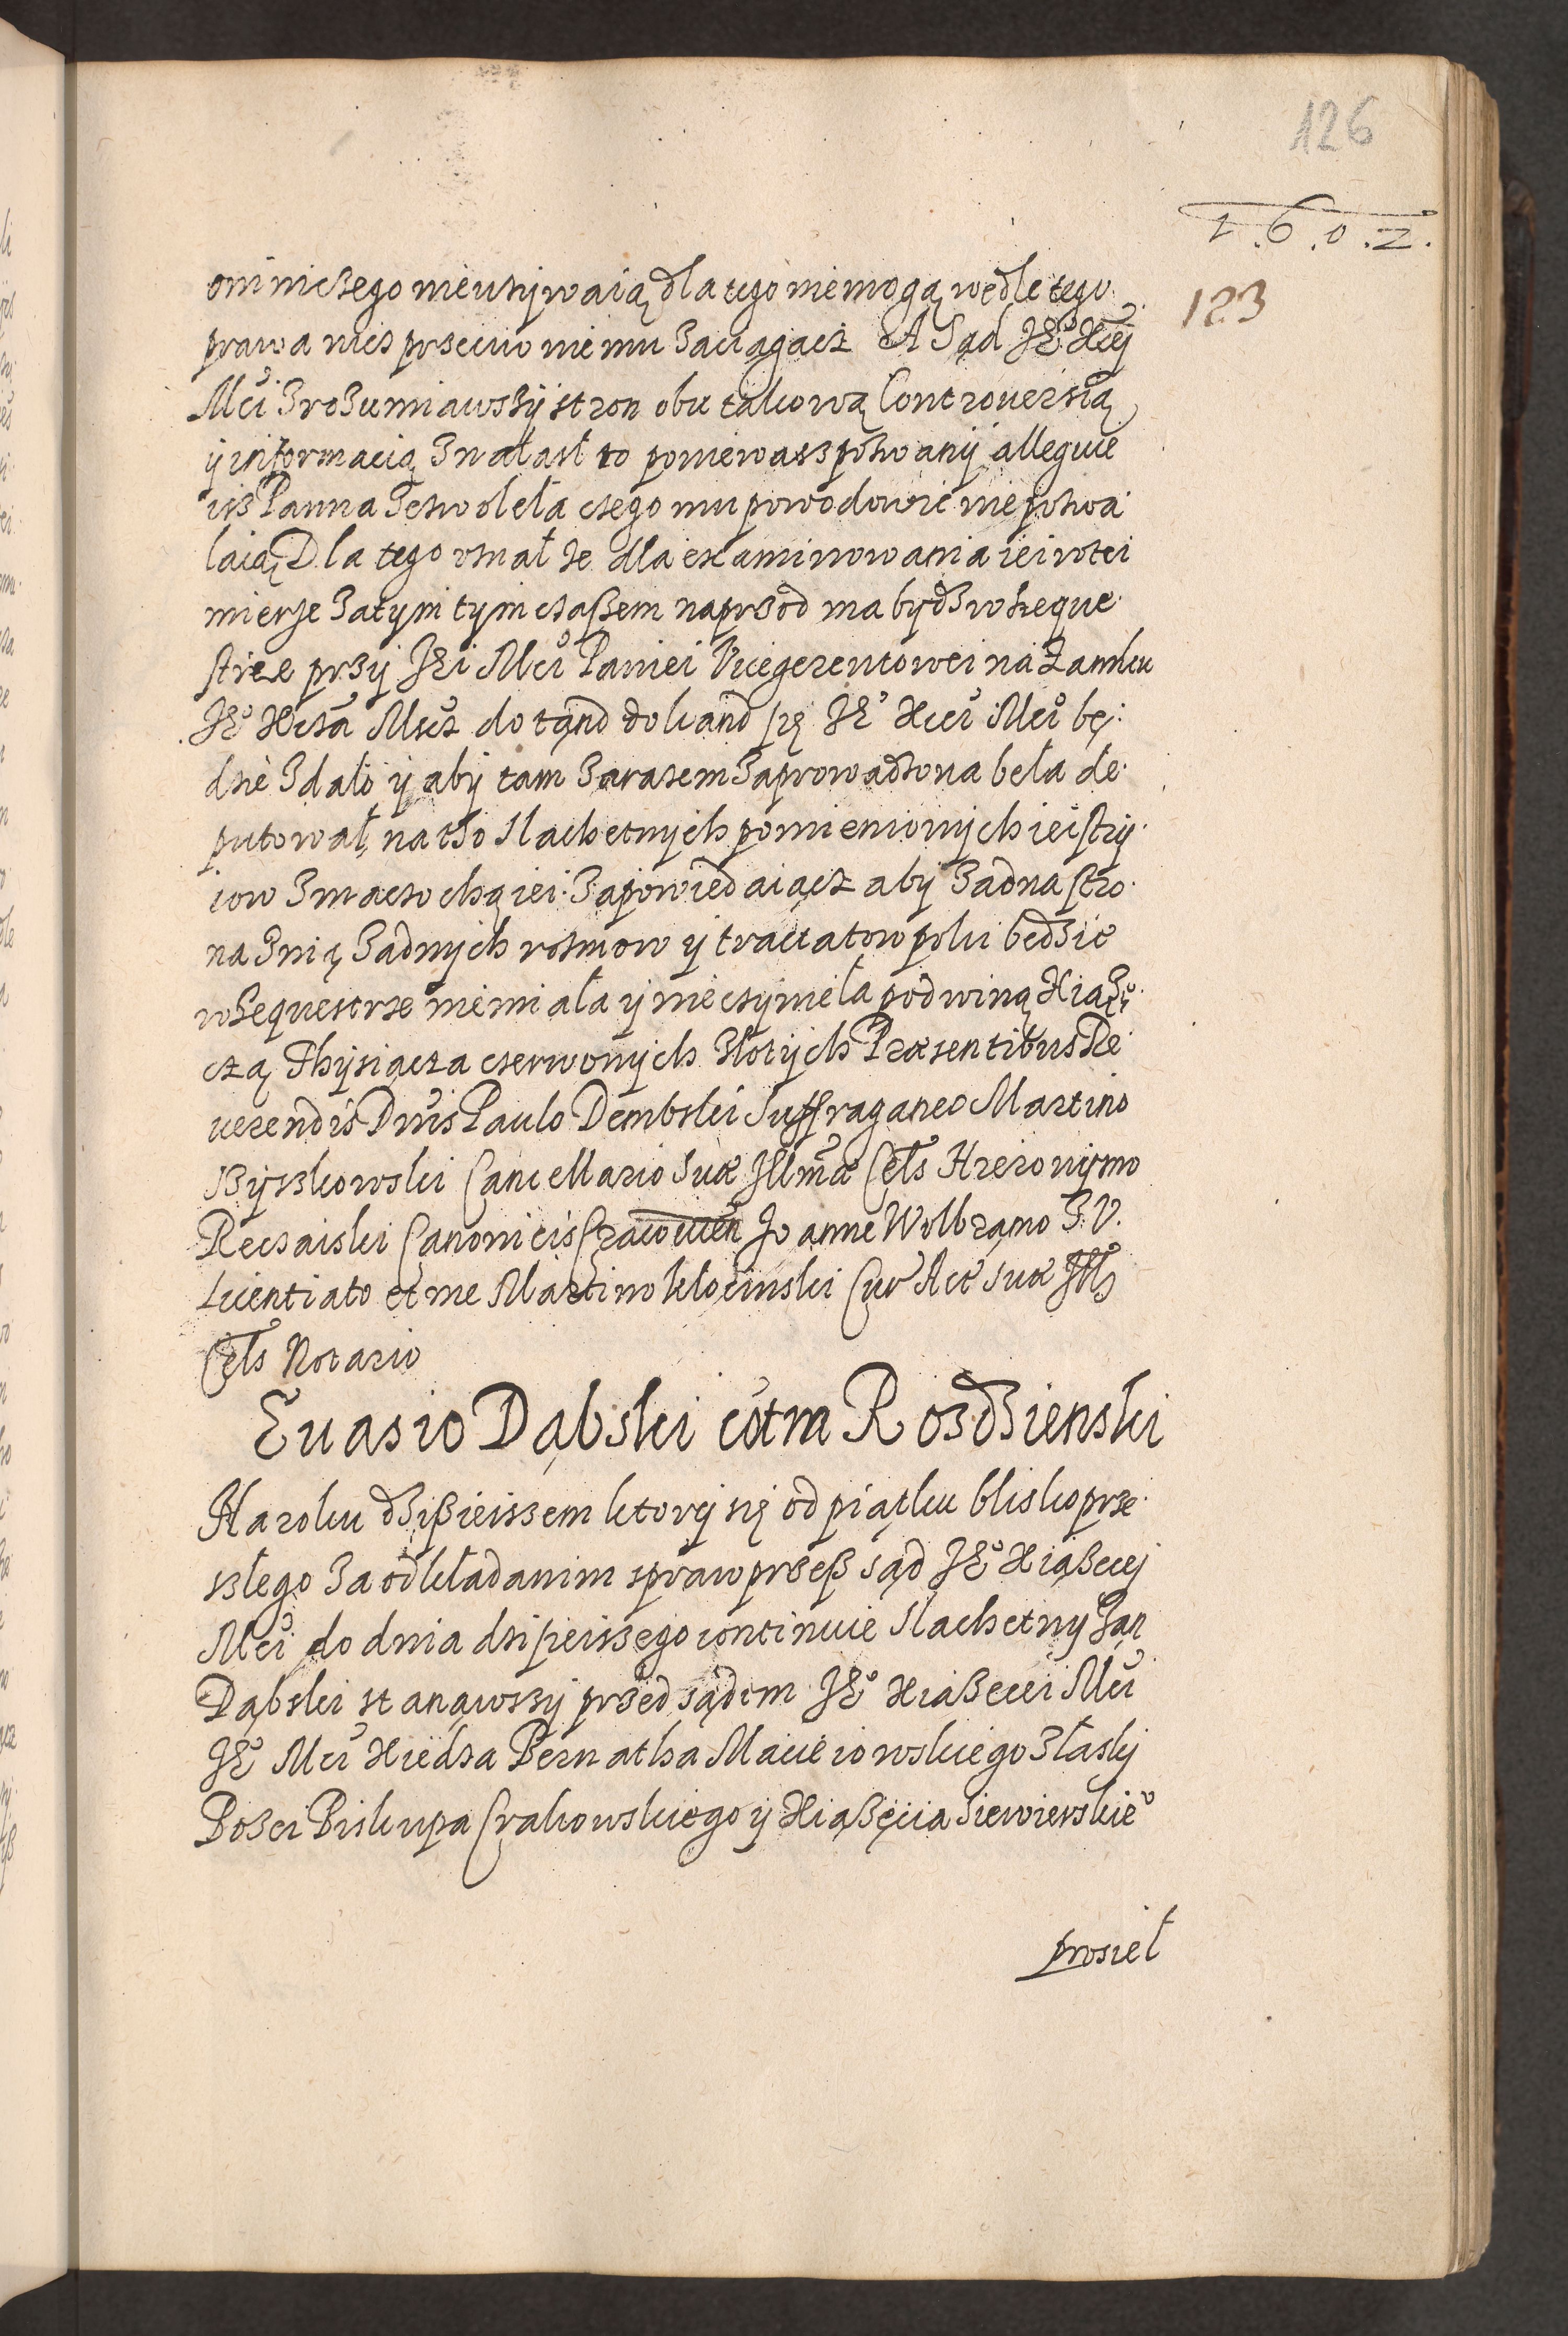 126
1.6.0.2.
123
oni niczego nieużywaią dla tego niemogą wedle tego
prawa nics przeciw niemu zaciągacz A Sąd JE° Xcej
Mci zrozumiawszy stron obu takową Controuersią
y informacią znalasł to poniewasz pozwany alleguie
isz Panna zezwoleła czego mu powodowie niepozwa
laią Dla tego uznał że dla examinowania iei w tei
mierze zatym tym czasem naprzod ma bydz w seque
strze przy JEi Mci Paniei Vicegerentowei na Zamku
JE° Xcza Mscz do tąnd dokand się JE° Xcei Mci bę
dzie zdało y aby tam zarazem zaprowadzona beła de
putował na tho slachetnych pomienionych iei stry
iow z macochą iei. Zapowiedaiącz aby żadna stro
na z nią żadnych rozmow y tractatow poki będzie
w sequestrze niemiała y nieczyniela pod winą Xiązę
czą Thysiącza czerwonych złotych Præsentibus Re
uerendis Dnis Paulo Dembski Suffraganeo Martino
Szyszkowski Cancellario Suæ Illmæ Cels Hieronymo
Reczaiski Canonicis Cracouien Joanne Wolbramo J.V.
Licentiato et me Martino Klocinski Cur Act Suæ Ill
Cels Notario
Euasio Dąbski cotra Rozdzienski
Na roku dzisieiszem ktory się od piątku blisko prze
szłego za odkładanim spraw przesz sąd JE° Xiązecej
Mci do dnia dzisieiszego continuie Slachetny Jan
Dąbski stanąwszy przed sądem JE° Xiązecei Mci
JE° Mci Xiedza Bernatha Macieiowskiego z łasky
Bozei Biskupa Crakowskiego y Xiązęcia Siewierskie°
prosieł